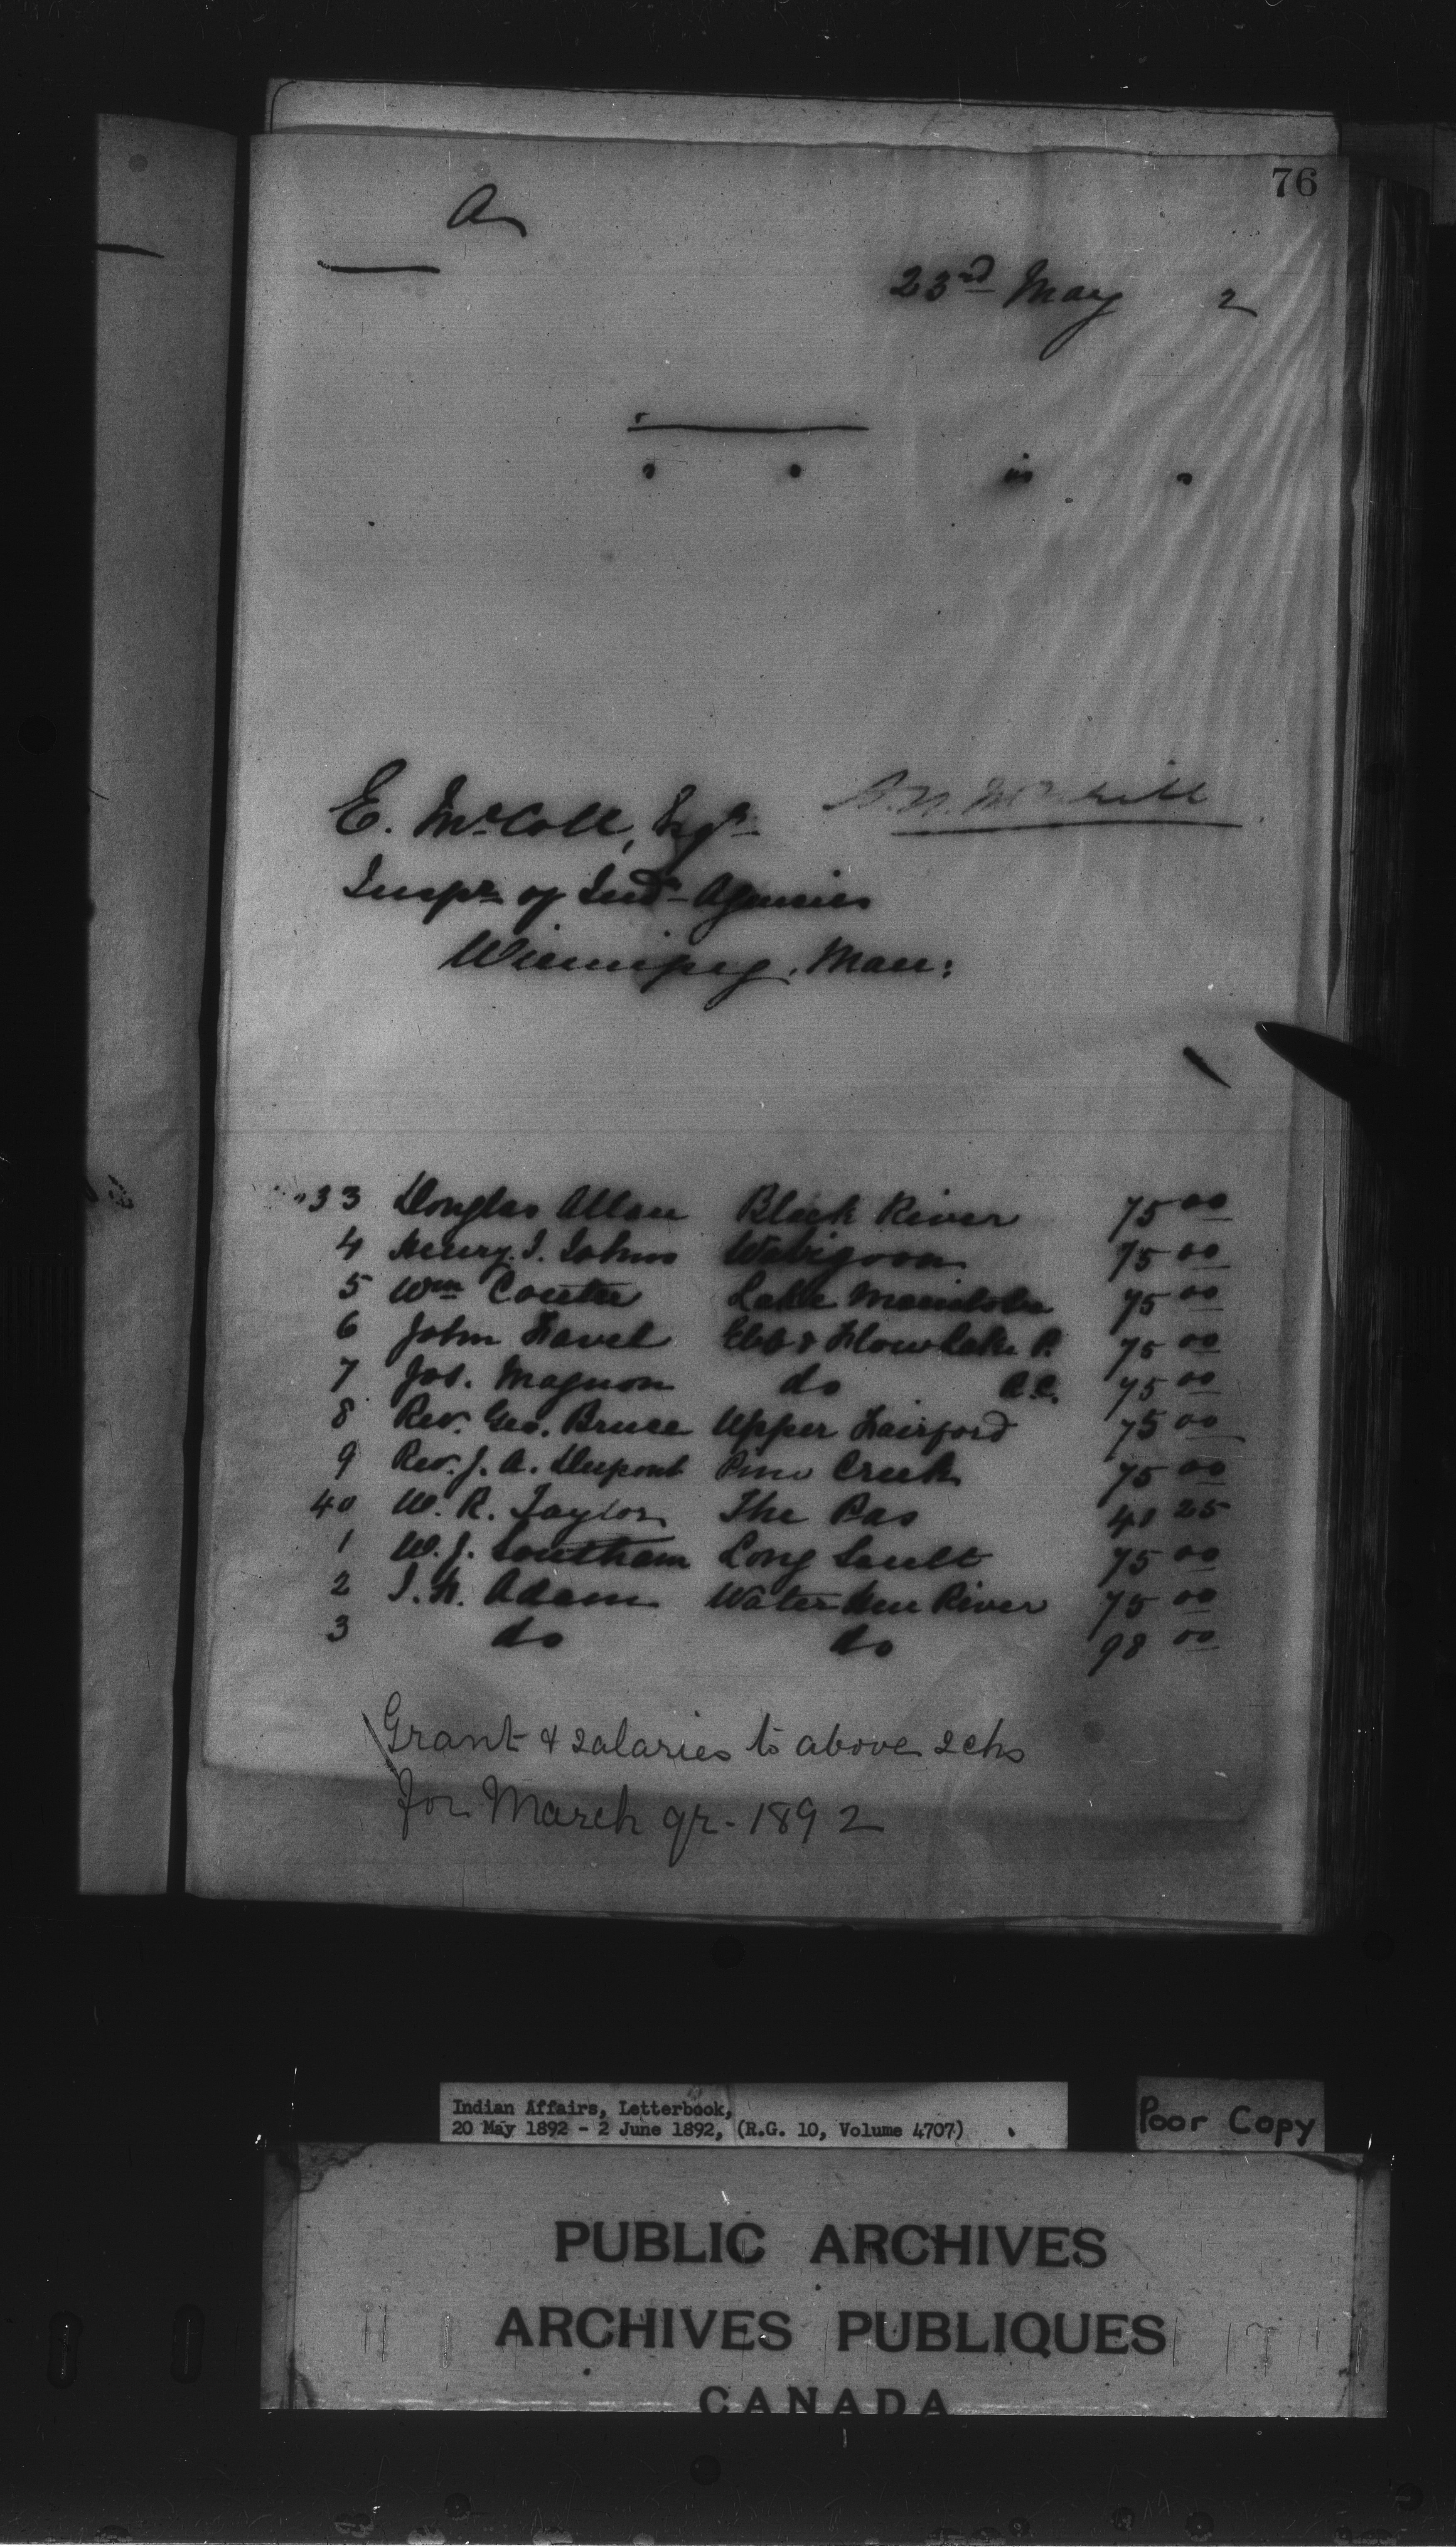 76
A
23rd May 2
E. McColl, Esqr
Inspr of Indn Agencies
Winnipeg, Man:
33 Douglas Allan Black River 75 00
4 Henry. I. Johns Wabigoon 75 00
5 Wm Coutu Lake Manitoba 75 00
6 John Favel Ebb & Flow Lake P. 75 00
7 Jos. Magnon do R.C. 75 00
8 Rev. Geo. Bruce Upper Fairford 75 00
9 Rev. J. A. Dupont Pine Creek 75 00
40 W. R. Taylor The Pas 41 25
1 W. J. Southam Long Sault 75 00
2 I. H. Adam Water Hen River 75 00
3 do do 98 00
Grant & salaries to above schs
for March qr. 1892
Indian Affairs, Letterbook,
20 May 1892 - 2 June 1892, (R.G. 10, Volume 4707)
Poor Copy
PUBLIC ARCHIVES
ARCHIVES PUBLIQUES
CANADA